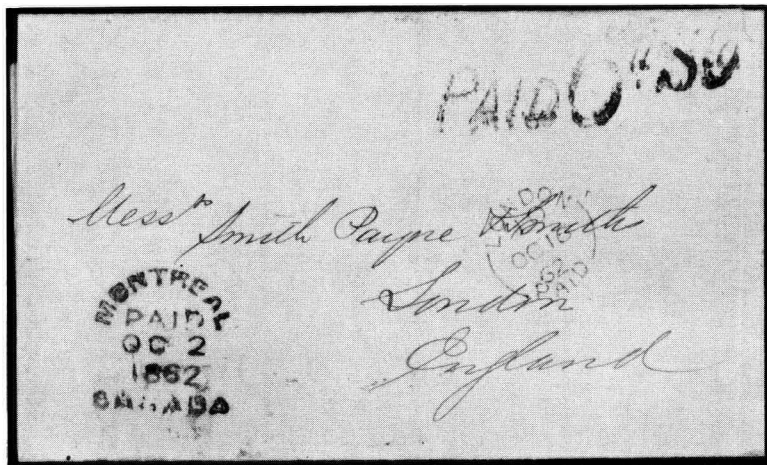 PAID
Mess^rs Smith Payne & Smiths
London
England
LONDON
OC 16
62
PAID
MONTREAL
PAID
OC 2
1862
CANADA